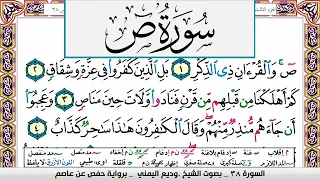 سُورَةُ ص
صٓ وَالْقُرْءَانِ ذِي الذِّكْرِ ١ بَلِ الَّذِينَ كَفَرُوا فِي عِزَّةٍ وَشِقَاقٍ ٢
كَمْ أَهْلَكْنَا مِن قَبْلِهِم مِّن قَرْنٍ فَنَادَوا وَّلَاتَ حِينَ مَنَاصٍ ٣ وَعَجِبُوا
أَن جَاءَهُم مُّنذِرٌ مِّنْهُمْ وَقَالَ الْكَافِرُونَ هَٰذَا سَاحِرٌ كَذَّابٌ ٤
السورة ٣٨ - بصوت الشيخ . وديع اليمني - برواية حفص عن عاصم